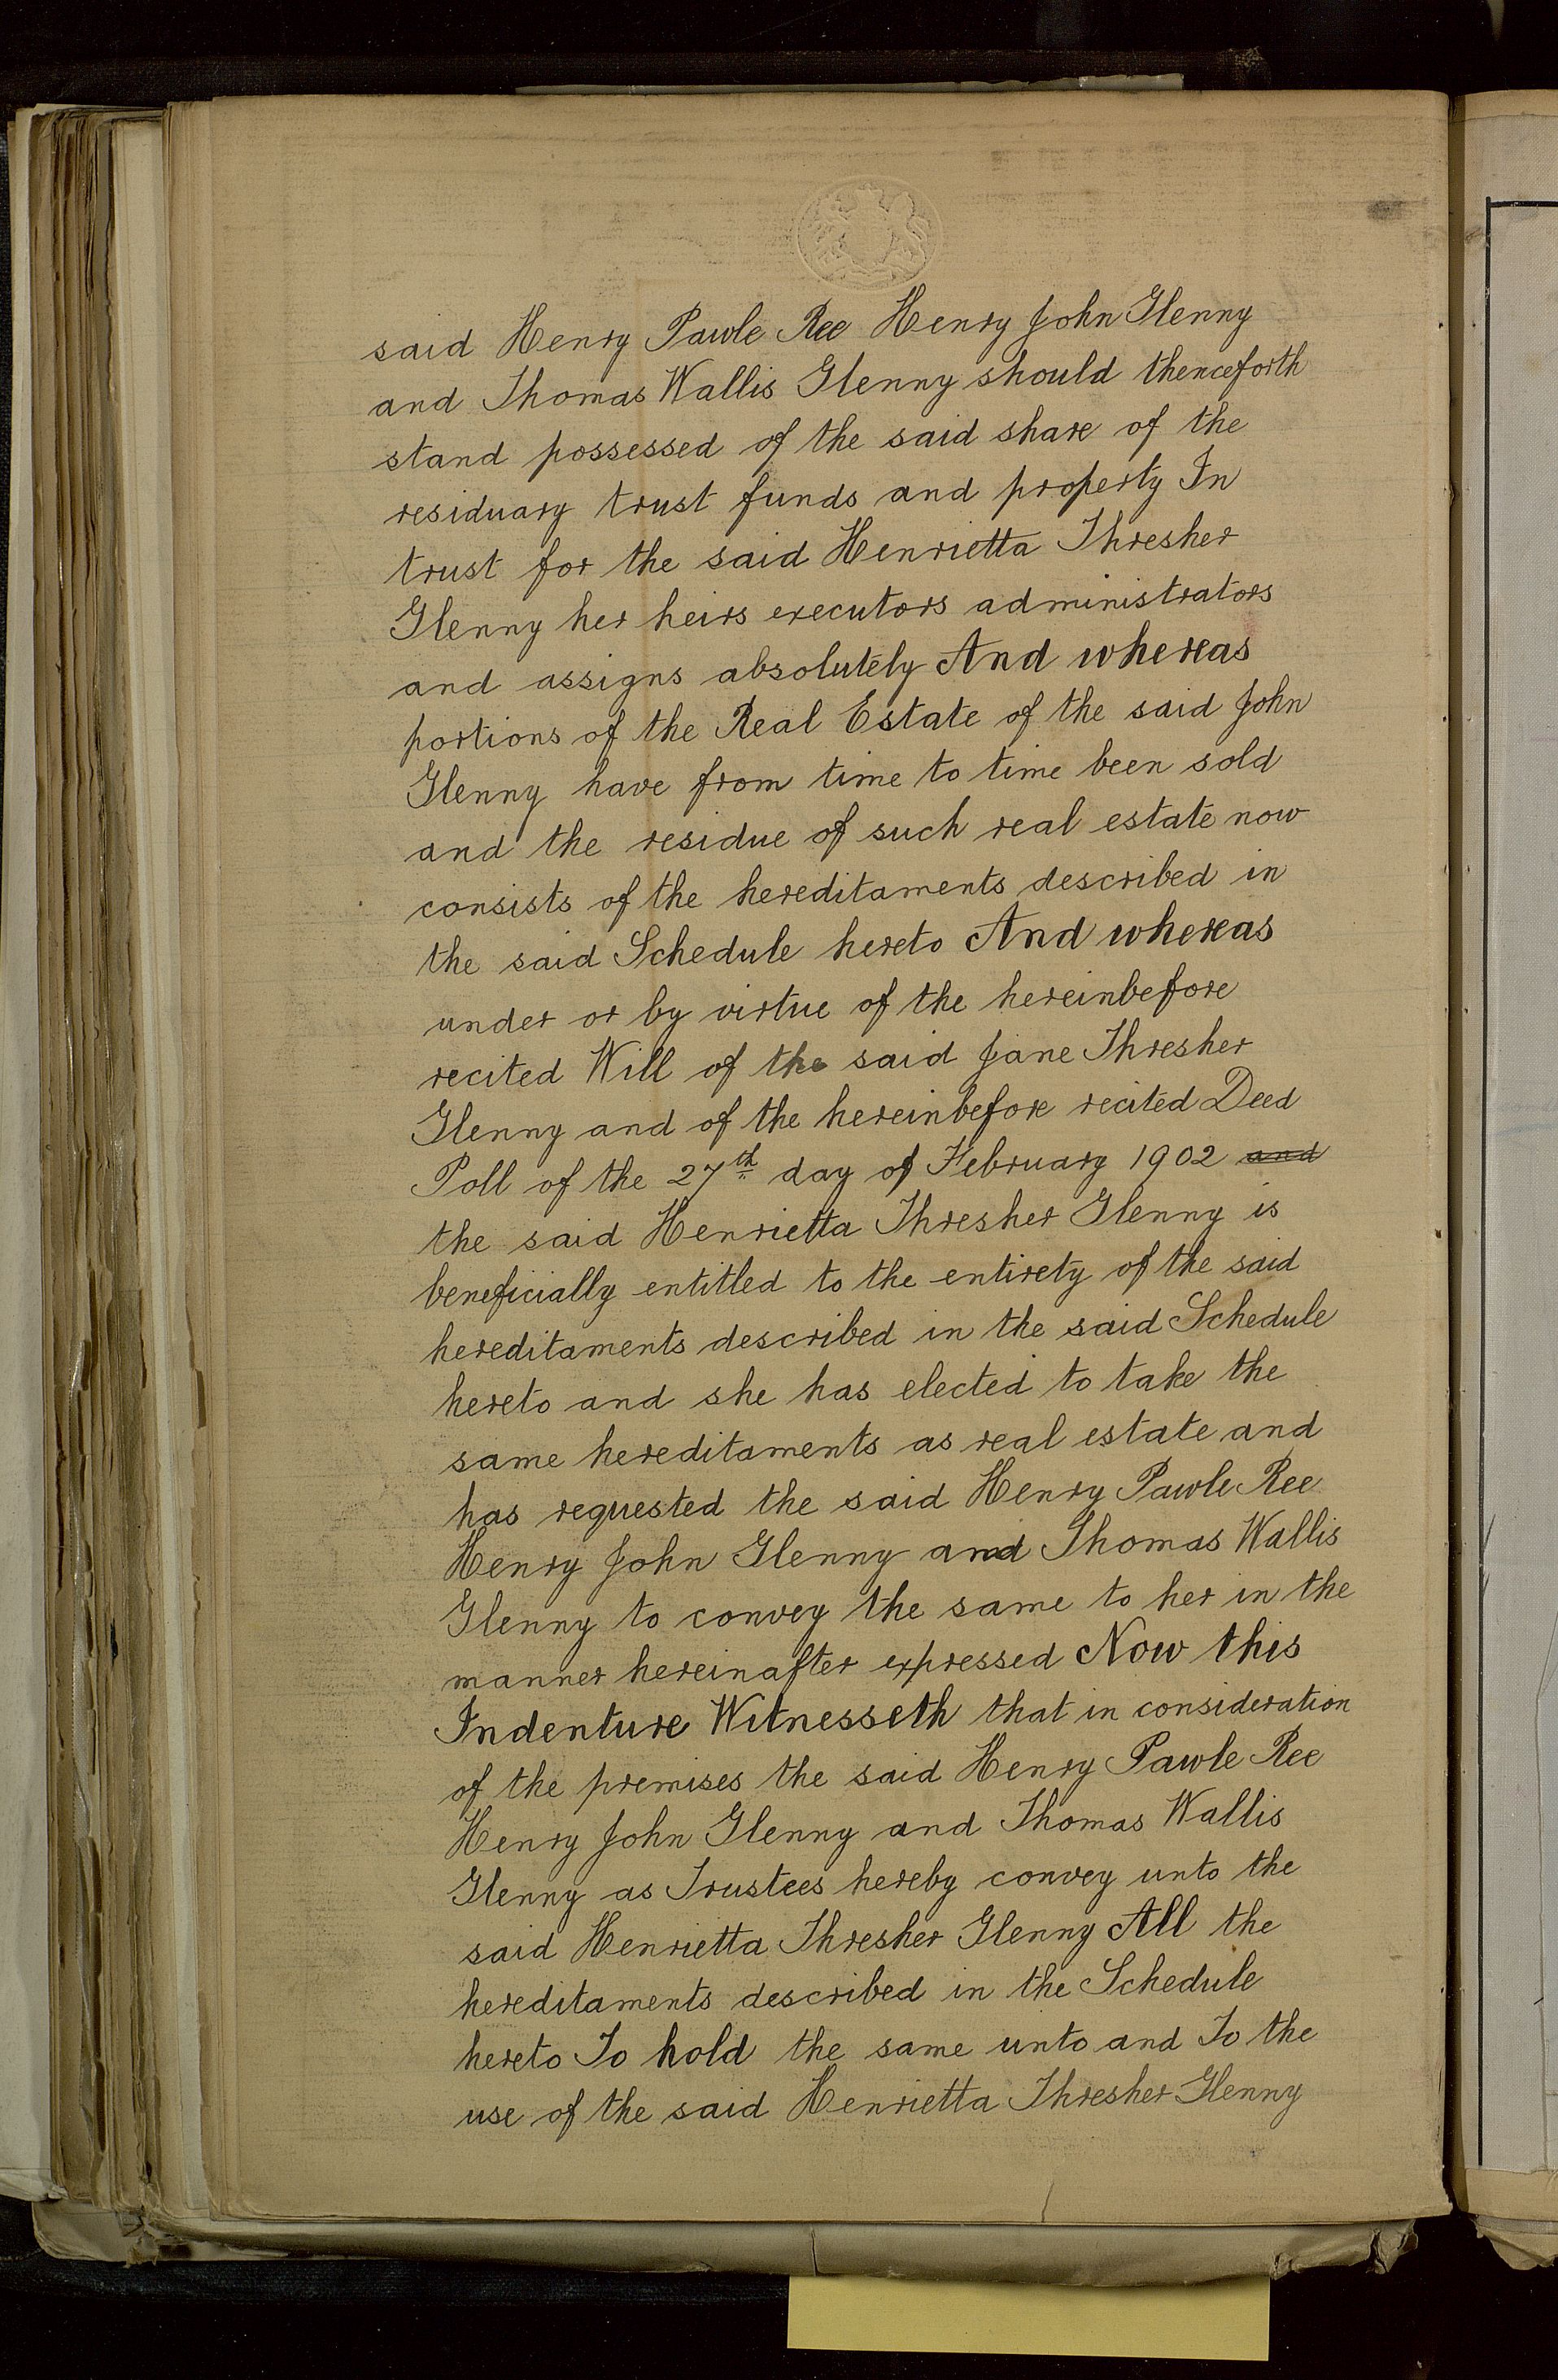 said Henry Pawle Ree Henry John Glenny
and Thomas Wallis Glenny should thenceforth
stand possessed of the said share of the
residuary trust funds and property In
trust for the said Henrietta Thresher
Glenny her heirs executors administrators
and assigns absolutely And whereas
portions of the Real Estate of the said John
Glenny have from time to time been sold
and the residue of such real estate now
consists of the hereditaments described in
the said Schedule hereto And whereas
under or by virtue of the hereinbefore
recited Will of the said Jane Thresher
Glenny and of the hereinbefore recited Deed
Poll of the 27th day of February 1902 and
the said Henrietta Thresher Glenny is
beneficially entitled to the entirety of the said
hereditaments described in the said Schedule
hereto and she has elected to take the
same hereditaments as real estate and
has requested the said Henry Pawle Ree
Henry John Glenny and Thomas Wallis
Glenny to convey the same to her in the
manner hereinafter expressed Now this
Indenture Witnesseth that in consideration
of the premises the said Henry Pawle Ree
Henry John Glenny and Thomas Wallis
Glenny as Trustees hereby convey unto the
said Henrietta Thresher Glenny All the
hereditaments described in the Schedule
hereto To hold the same unto and To the
use of the said Henrietta Thresher Glenny